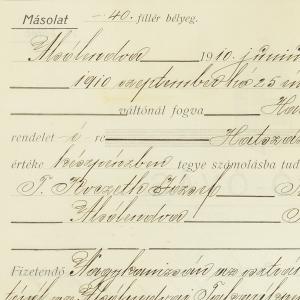 Másolat — 40. fillér bélyeg.
Alsólendva 1910. június
1910 szeptember hó 25
váltónál fogva Hat
rendelet é re Hatszáz
értéke készpénzben tegye számolásba tud
T. József
Alsólendva
Fizetendő Nagykanizsán az osztrák
Alsólendvai Takarék